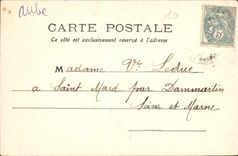 Aube
10
CARTE POSTALE
Ce côté est exclusivement réservé à l'adresse
5
Madame Vve Leduc
a Saint Mard par Dammartin
Seine et Marne